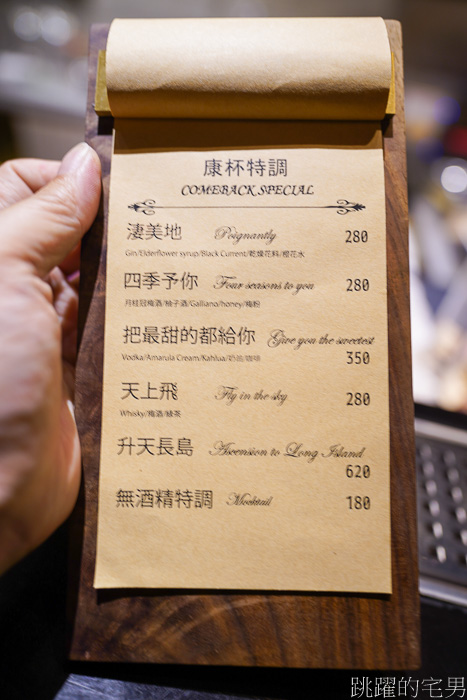 康杯特調
COMEBACK SPECIAL
淒美地 Poignantly 280
Gin/Elderflower syrup/Black Current/乾燥花料/橙花水
四季予你 Four seasons to you 280
月桂冠梅酒/柚子酒/Galliano/honey/梅粉
把最甜的都給你 Give you the sweetest
350
Vodka/Amarula Cream/Kahlua/奶油/咖啡
天上飛 Fly in the sky 280
Whisky/梅酒/綠茶
升天長島 Ascension to Long Island
620
無酒精特調 Mocktail 180
跳躍的宅男